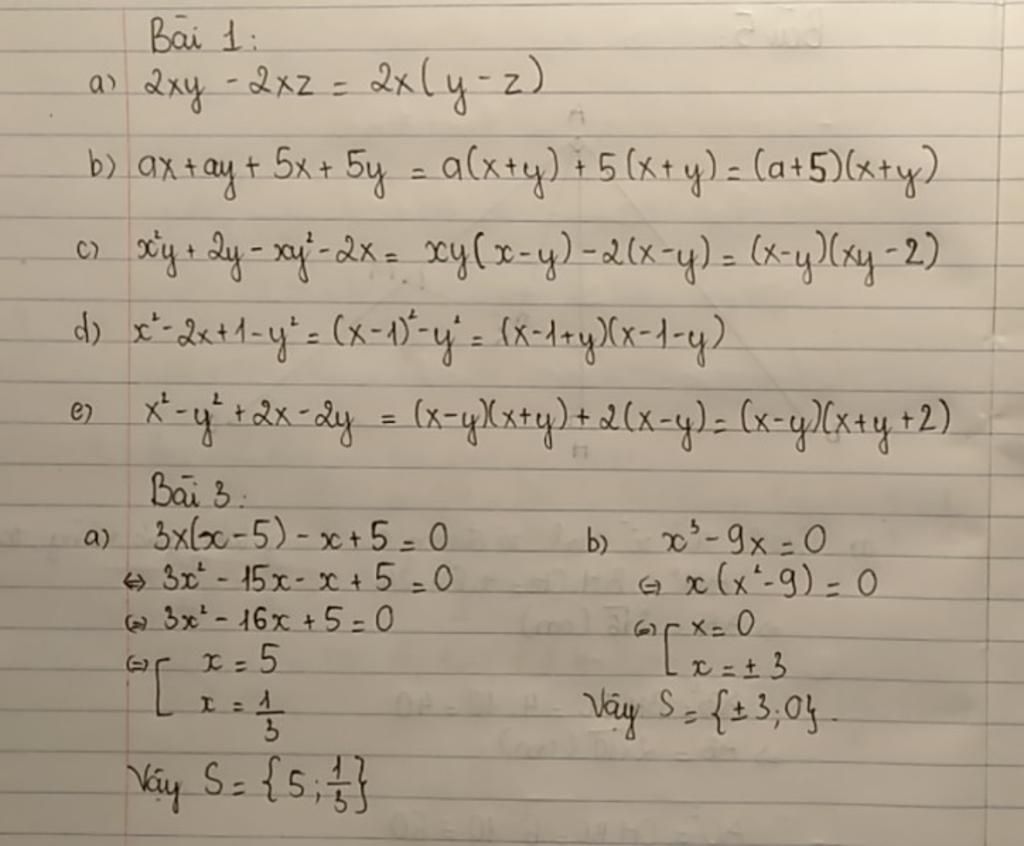 Bài 1:
a) 2xy - 2xz = 2x(y - z)
b) ax + ay + 5x + 5y = a(x+y) + 5(x+y) = (a+5)(x+y)
c) x²y + 2y - xy² - 2x = xy(x-y) - 2(x-y) = (x-y)(xy-2)
d) x² - 2x + 1 - y² = (x-1)² - y² = (x-1+y)(x-1-y)
e) x² - y² + 2x - 2y = (x-y)(x+y) + 2(x-y) = (x-y)(x+y+2)
Bài 3:
a) 3x(x-5) - x + 5 = 0
⇔ 3x² - 15x - x + 5 = 0
⇔ 3x² - 16x + 5 = 0
⇔ [ x = 5
x = 1/3
Vậy S = {5; 1/3}
b) x³ - 9x = 0
⇔ x(x² - 9) = 0
⇔ [ x = 0
x = ± 3
Vậy S = {±3; 0}.